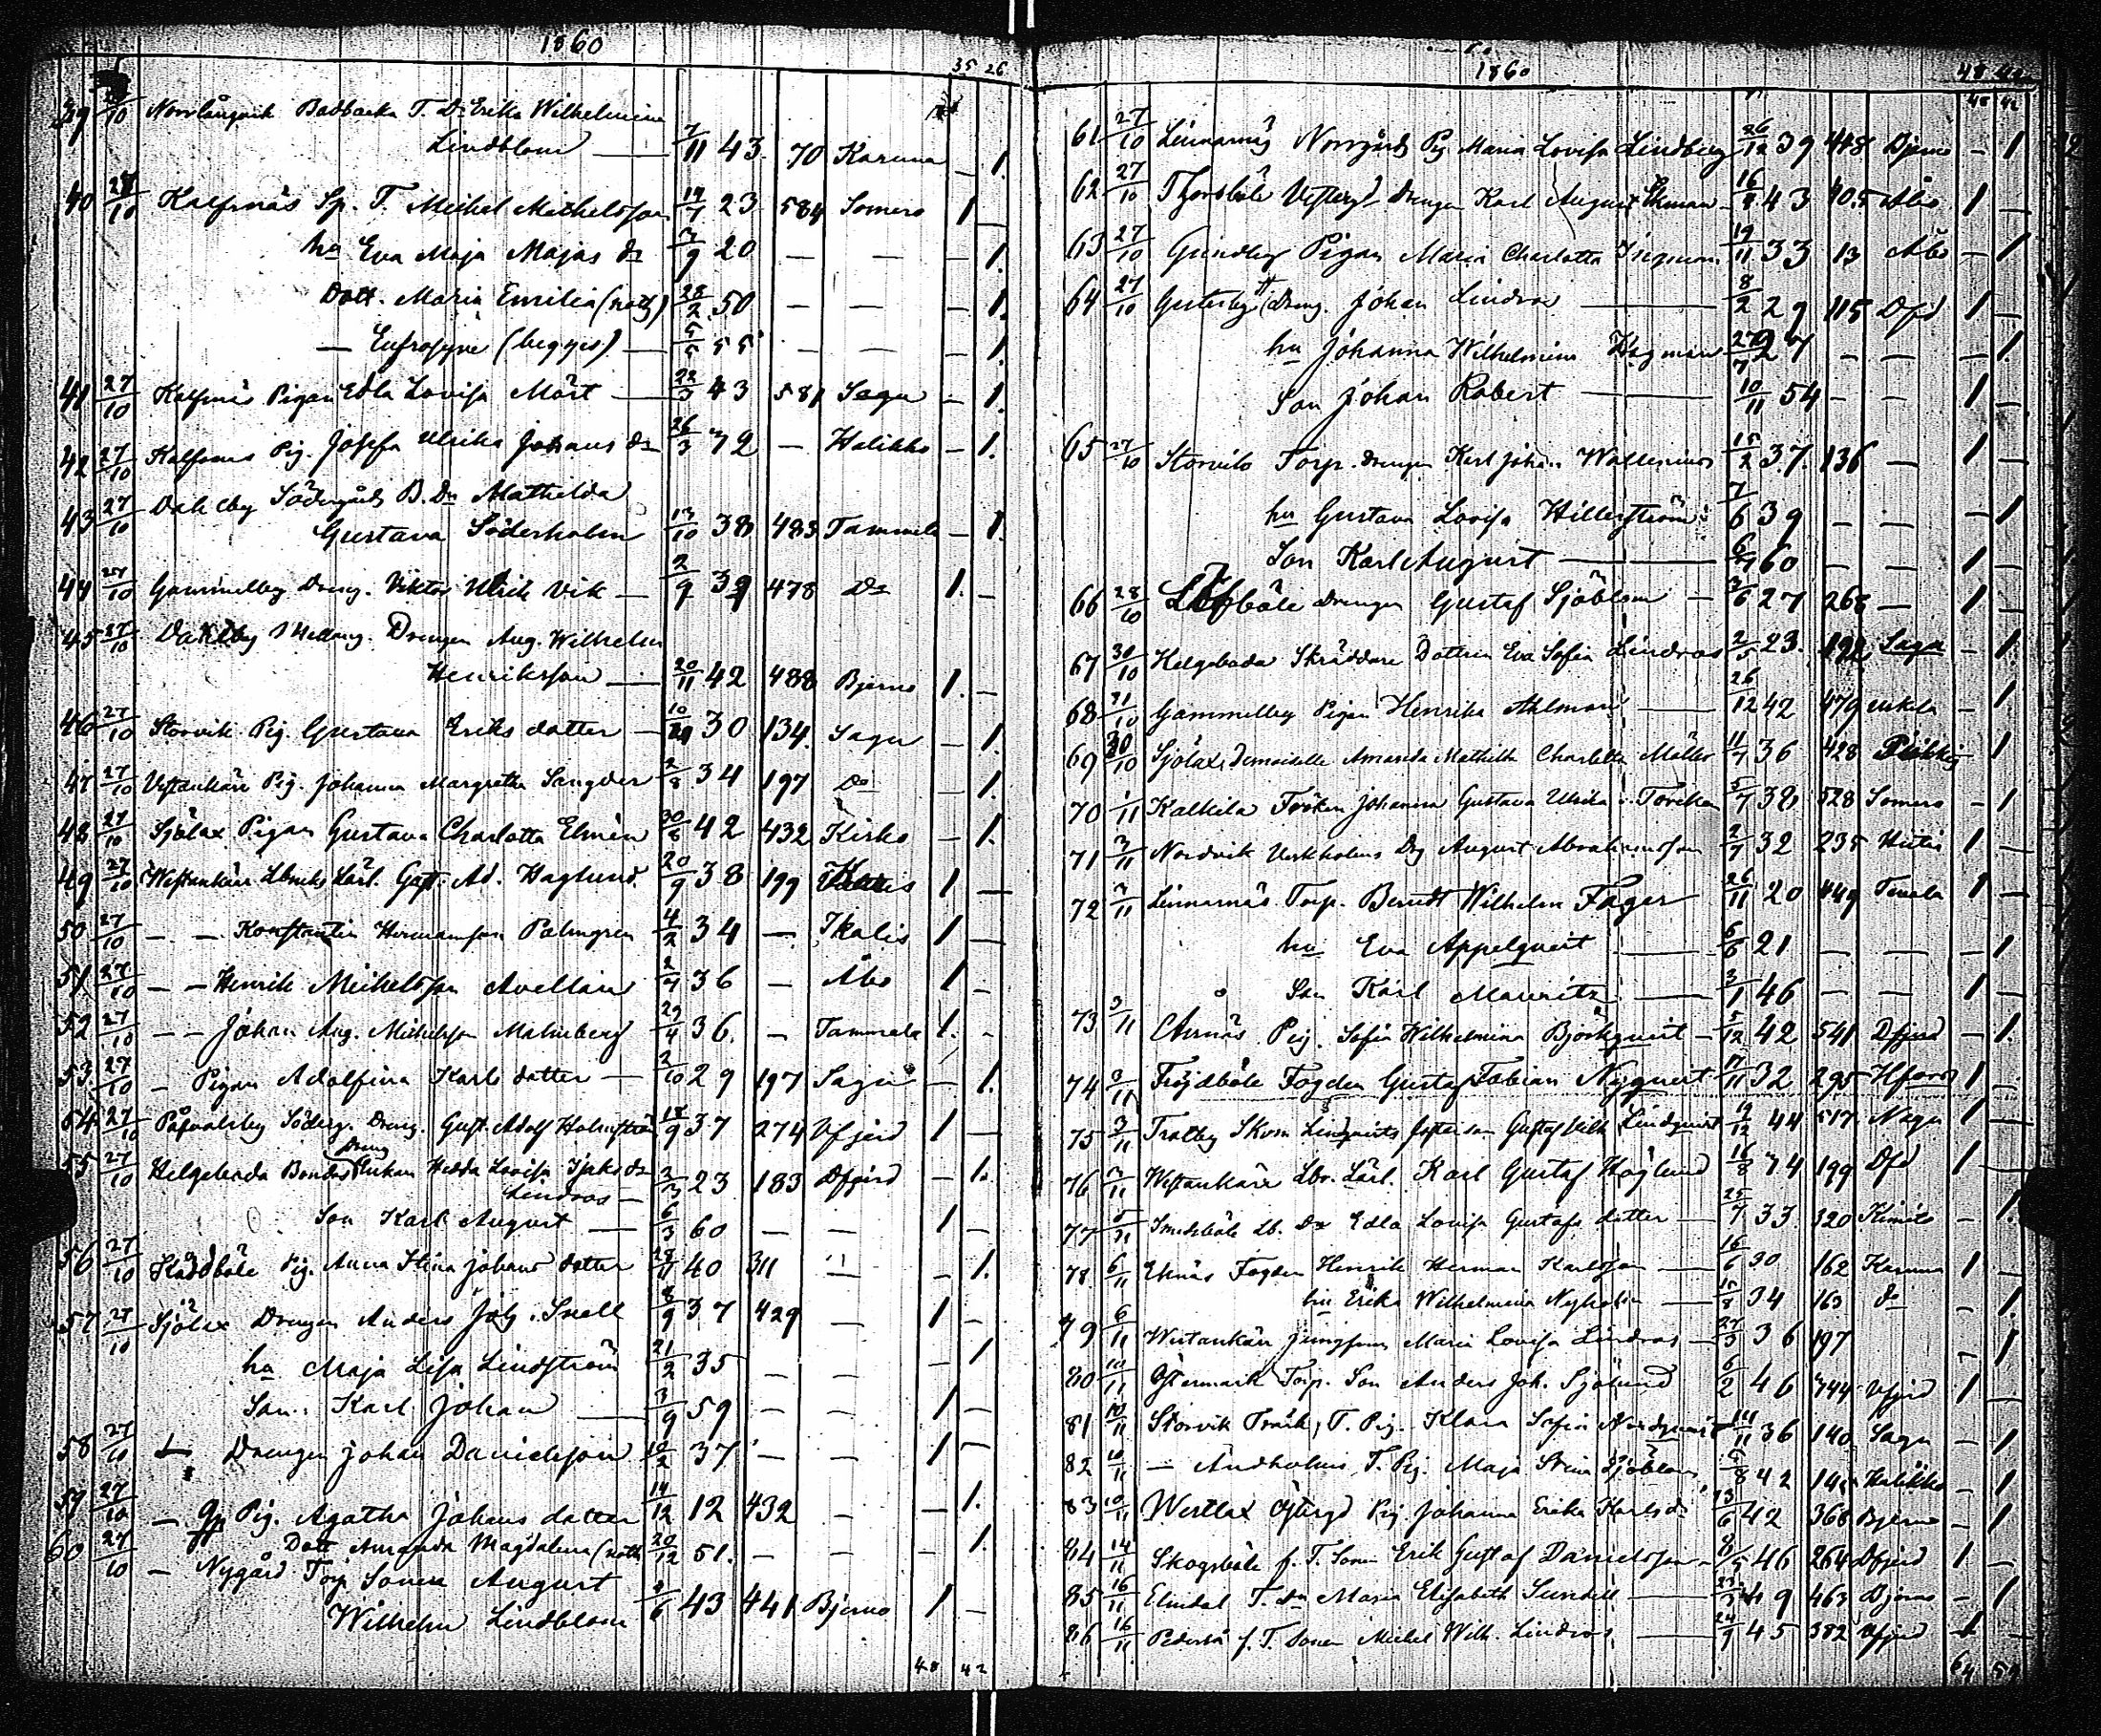 1860
35 26
39 27/10 Norrlångvik Badbacka T. Dr Erika Wilhelmina
Lindblom 7/11 43 70 Karuna 1
40 27/10 Kalfsnäs Sp. T. Michel Michelsson 14/7 23 584 Somero 1
hu Eva Maja Majas dr 9 20 — — 1
Dott. Maria Emilia 28/2 50 — — 1
— Eufrosyne (begges) 55 — — 1
41 27/10 Kalfnäs Pigan Edla Lovisa Mört 22/3 43 581 Sagu 1
42 27/10 Kalfnäs Pig. Josefa Ulrika Johans dr 26/3 — Halikko 1
43 27/10 Dahlby Södergårds B. Dr Mathilda
Gustava Söderholm 13/10 38 483 Tammela 1
44 27/10 Gammelby Dreng. Viktor Ulrik Vik 2/9 39 478 Do 1
45 27/10 Dahlby Drengen Aug. Wilhelm
Henriksson 20/11 42 488 Bjerno 1
46 27/10 Storvik Pig. Gustava Eriks dotter 10 30 134 Sagu 1
47 27/10 Vestankärr Pig. Johanna Margretha Sangder 2/8 34 197 Do 1
48 27/10 Sjölax Pigan Gustava Charlotta Elmén 30/8 42 432 Kisko 1
49 27/10 Westankärr Lärl. Gust. Ad. Haglund 20/9 38 199 1
50 27/10 — — Konstantin Hermansson Palmgren 4/2 34 — Ikalis 1
51 27/10 — — Henrik Michelsson Avellan 2/7 36 — Åbo 1
52 27/10 — — Johan Aug. Michelsson Malmberg 29/4 36 — Tammela 1
53 27/10 — Pigan Adolfina Karls dotter 2/10 29 197 Sagu 1
54 27/10 Påvalsby Söderg. Dreng. Gust. Adolf Holmström 18/9 37 274 Vfjerd 1
55 27/10 Helgeboda Bondes Dreng Enkan Hedda Lovisa dr
Lindroos 23 183 Dfjerd 1
Son Karl August 6/3 60 — — 1
56 27/10 Rådböle Pig. Anna Stina Johans dotter 28 40 311 1
57 27/10 Sjölax Drengen Anders Joh. Snell 8/9 37 429 — 1
hu Maja Lisa Lindström 21/2 35 — — 1
Son Karl Johan 3/9 59 — — 1
58 27/10 Drengen Johan Danielsson 2 37 — — 1
59 27/10 — Pig. Agatha Johans dotter 14/12 12 432 — 1
Dott Amanda Magdalena 20/12 51 — — 1
60 27/10 — Nygård Torp Sonen August
Wilhelm Lindblom 6 43 441 Bjerno 1
48 42
1860
48 42
48 42
61 27/10 Linnarnäs Norrgårds Pig Maria Lovisa Lindberg 26/12 39 448 Bjerno — 1
62 27/10 Vesterg. Drengen Karl August Ekman 16 43 405 Åbo 1
63 27/10 Pigan Maria Charlotta 19/11 33 13 Åbo — 1
64 27/10 Gesterby Dreng. Johan Lindroos 8/2 29 115 Dfd 1
hu Johanna Wilhelmina Hagman 27 — — 1
Son Johan Robert 10/11 54 — — 1
65 27/10 Storvik Torp. Drengen Karl Johan Wallenius 15/2 37 136 — 1
hu Gustava Lovisa Hillerström 7/6 39 — — 1
Son Karl August 6 60 — — 1
66 28/10 Löfböle Drengen Gustaf Sjöblom 3/6 27 268 — 1
67 30/10 Helgeboda Skräddare Dottern Eva Sofia Lindroos 2/5 23 192 Sagu — 1
68 31/10 Gammelby Pigan Henrika Ahlman 26/12 42 479 — 1
69 30/10 Sjölax Demoiselle Amanda Mathilda Charlotta Möller 11 36 428 Piikkis 1
70 1/11 Kalkila Fröken Johanna Gustava Ulrika Törcken 5/7 38 528 Somero — 1
71 3/11 Nordvik Verkholms Drg August Abrahamsson 2/7 32 235 Hitis 1
72 3/11 Linnarnäs Torp. Berndt Wilhelm Fager 26/11 20 449 Tenala 1
hu Eva Appelqvist 6/6 21 — — 1
Son Karl Mauritz 3/1 46 — — 1
73 3/11 Arnäs Pig. Sofia Wilhelmina Björkqvist 5/12 42 541 Dfjerd 1
74 3/11 Fröjdböle Fogden Gustaf Fabian Nyqvist 17/11 32 295 Hfors 1
75 3/11 Tralby Lindqvists fosterson Gustaf Wilh. Lindqvist 19/12 44 517 Nagu 1
76 3/11 Westankärr Lbr. Lärl. Karl Gustaf Höglund 16/8 199 Dfd 1
77 5/11 Smedsböle Lb. Dr Edla Lovisa Gustafs dotter 25/7 33 320 Kimito — 1
78 6/11 Eknäs Fogden Henrik Herman Karlsson 16/6 30 162 Karuna 1
hu Erika Wilhelmina Nyholm 15/8 34 163 Do 1
79 6/11 Westankärr Jungfrun Maria Lovisa Lindroos 27/3 36 197 — 1
80 10/11 Östermark Torp. Son Anders Joh. Sjölund 6/2 46 Vfjerd 1
81 10/11 Storvik T. Pig. Klara Sofia Nordqvist 36 140 Sagu — 1
82 10/11 — Andholms T. Pig. Maja Stina Sjöblom 8 42 Halikko — 1
83 10/11 Westlax Pig Johanna Erika Karls dr 13/6 42 368 Bjerno — 1
84 14/11 Skogsböle f. T. Sonen Erik Gustaf Danielsson 46 264 Dfjerd 1
85 16/11 Elmdal T. dr Maria Elisabeth Sundell 49 463 Bjerno — 1
86 16/11 f. T. Sonen Michel Wilh. Lindroos 24/9 45 382 Vfjerd 1
64